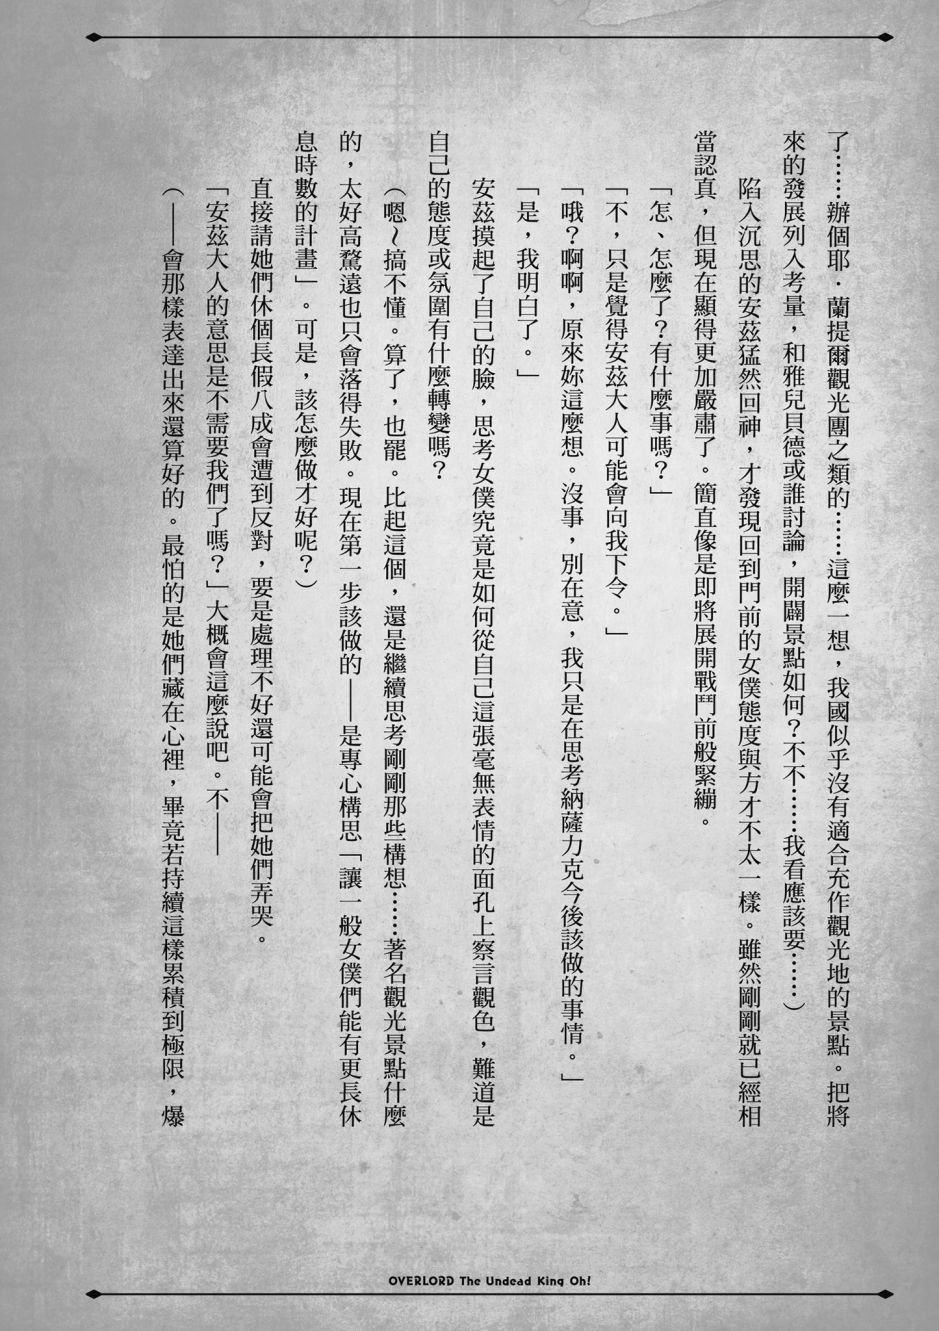 了……辦個耶·蘭提爾觀光團之類的……這麼一想，我國似乎沒有適合充作觀光地的景點。把將
來的發展列入考量，和雅兒貝德或誰討論，開闢景點如何？不不……我看應該要……）
陷入沉思的安茲猛然回神，才發現回到門前的女僕態度與方才不太一樣。雖然剛剛就已經相
當認真，但現在顯得更加嚴肅了。簡直像是即將展開戰鬥前般緊繃。
「怎、怎麼了？有什麼事嗎？」
「不，只是覺得安茲大人可能會向我下令。」
「哦？啊啊，原來妳這麼想。沒事，別在意，我只是在思考納薩力克今後該做的事情。」
「是，我明白了。」
安茲摸起了自己的臉，思考女僕究竟是如何從自己這張毫無表情的面孔上察言觀色，難道是
自己的態度或氛圍有什麼轉變嗎？
（嗯～搞不懂。算了，也罷。比起這個，還是繼續思考剛剛那些構想……著名觀光景點什麼
的，太好高騖遠也只會落得失敗。現在第一步該做的——是專心構思「讓一般女僕們能有更長休
息時數的計畫」。可是，該怎麼做才好呢？）
直接請她們休個長假八成會遭到反對，要是處理不好還可能會把她們弄哭。
「安茲大人的意思是不需要我們了嗎？」大概會這麼說吧。不——
（——會那樣表達出來還算好的。最怕的是她們藏在心裡，畢竟若持續這樣累積到極限，爆
OVERLORD The Undead King Oh!